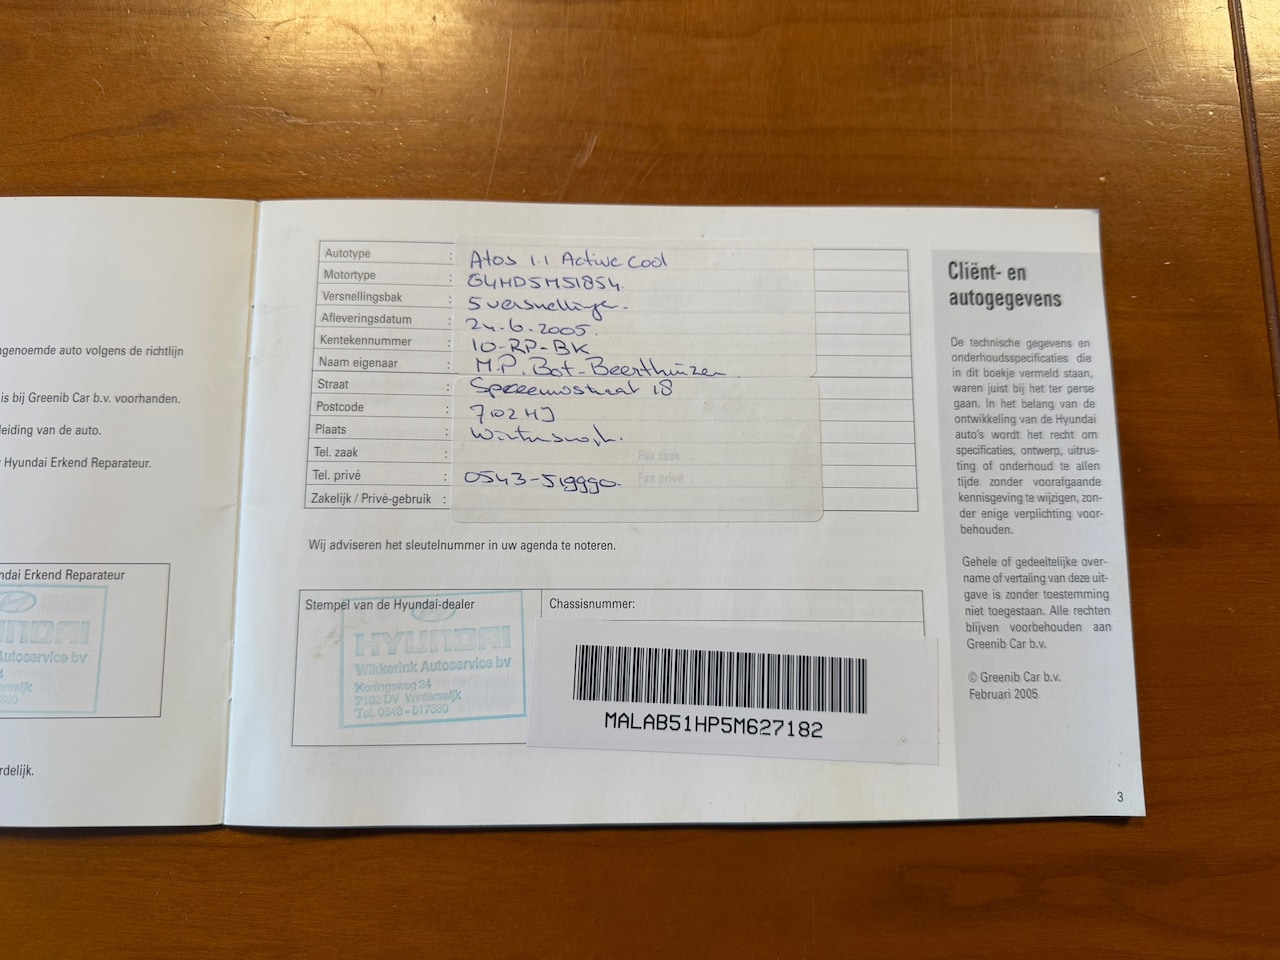 ngenoemde auto volgens de richtlijn
is bij Greenib Car b.v. voorhanden.
leiding van de auto.
Hyundai Erkend Reparateur.
ndai Erkend Reparateur
Autoservice bv
rdelijk.
Autotype : Atos 1.1 Active Cool
Motortype : G4HD5M51854
Versnellingsbak : 5 versnellingen.
Afleveringsdatum : 24-6-2005.
Kentekennummer : 10-RP-BK
Naam eigenaar : M.P. Bot-Beerthuizen
Straat : 18
Postcode : 7102 HJ
Plaats : Winterswijk.
Tel. zaak : Fax zaak :
Tel. privé : 0543-519990. Fax privé :
Zakelijk / Privé-gebruik :
Wij adviseren het sleutelnummer in uw agenda te noteren.
Stempel van de Hyundai-dealer
HYUNDAI
Wikkerink Autoservice bv
Koningsweg 24
7102 DV Winterswijk
Tel. 0543 - 517380
Chassisnummer:
MALAB51HP5M627182
Cliënt- en
autogegevens
De technische gegevens en
onderhoudsspecificaties die
in dit boekje vermeld staan,
waren juist bij het ter perse
gaan. In het belang van de
ontwikkeling van de Hyundai
auto's wordt het recht om
specificaties, ontwerp, uitrus-
ting of onderhoud te allen
tijde zonder voorafgaande
kennisgeving te wijzigen, zon-
der enige verplichting voor-
behouden.
Gehele of gedeeltelijke over-
name of vertaling van deze uit-
gave is zonder toestemming
niet toegestaan. Alle rechten
blijven voorbehouden aan
Greenib Car b.v.
© Greenib Car b.v.
Februari 2005
3